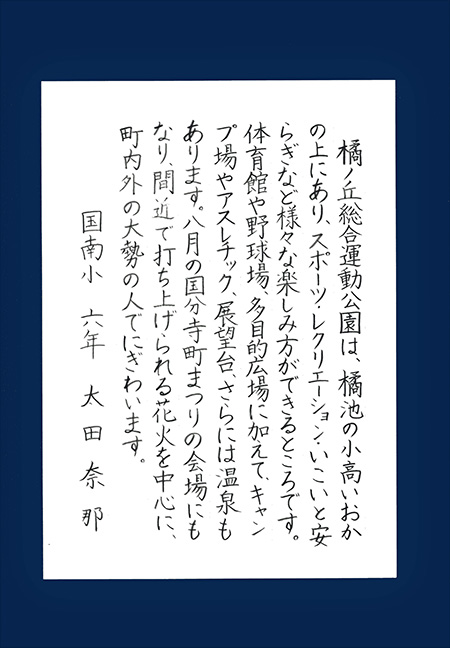 橘ノ丘総合運動公園は、橘池の小高いおか
の上にあり、スポーツ・レクリエーション・いこいと安
らぎなど様々な楽しみ方ができるところです。
体育館や野球場、多目的広場に加えて、キャン
プ場やアスレチック、展望台、さらには温泉も
あります。八月の国分寺町まつりの会場にも
なり、間近で打ち上げられる花火を中心に、
町内外の大勢の人でにぎわいます。
国南小 六年 太田奈那